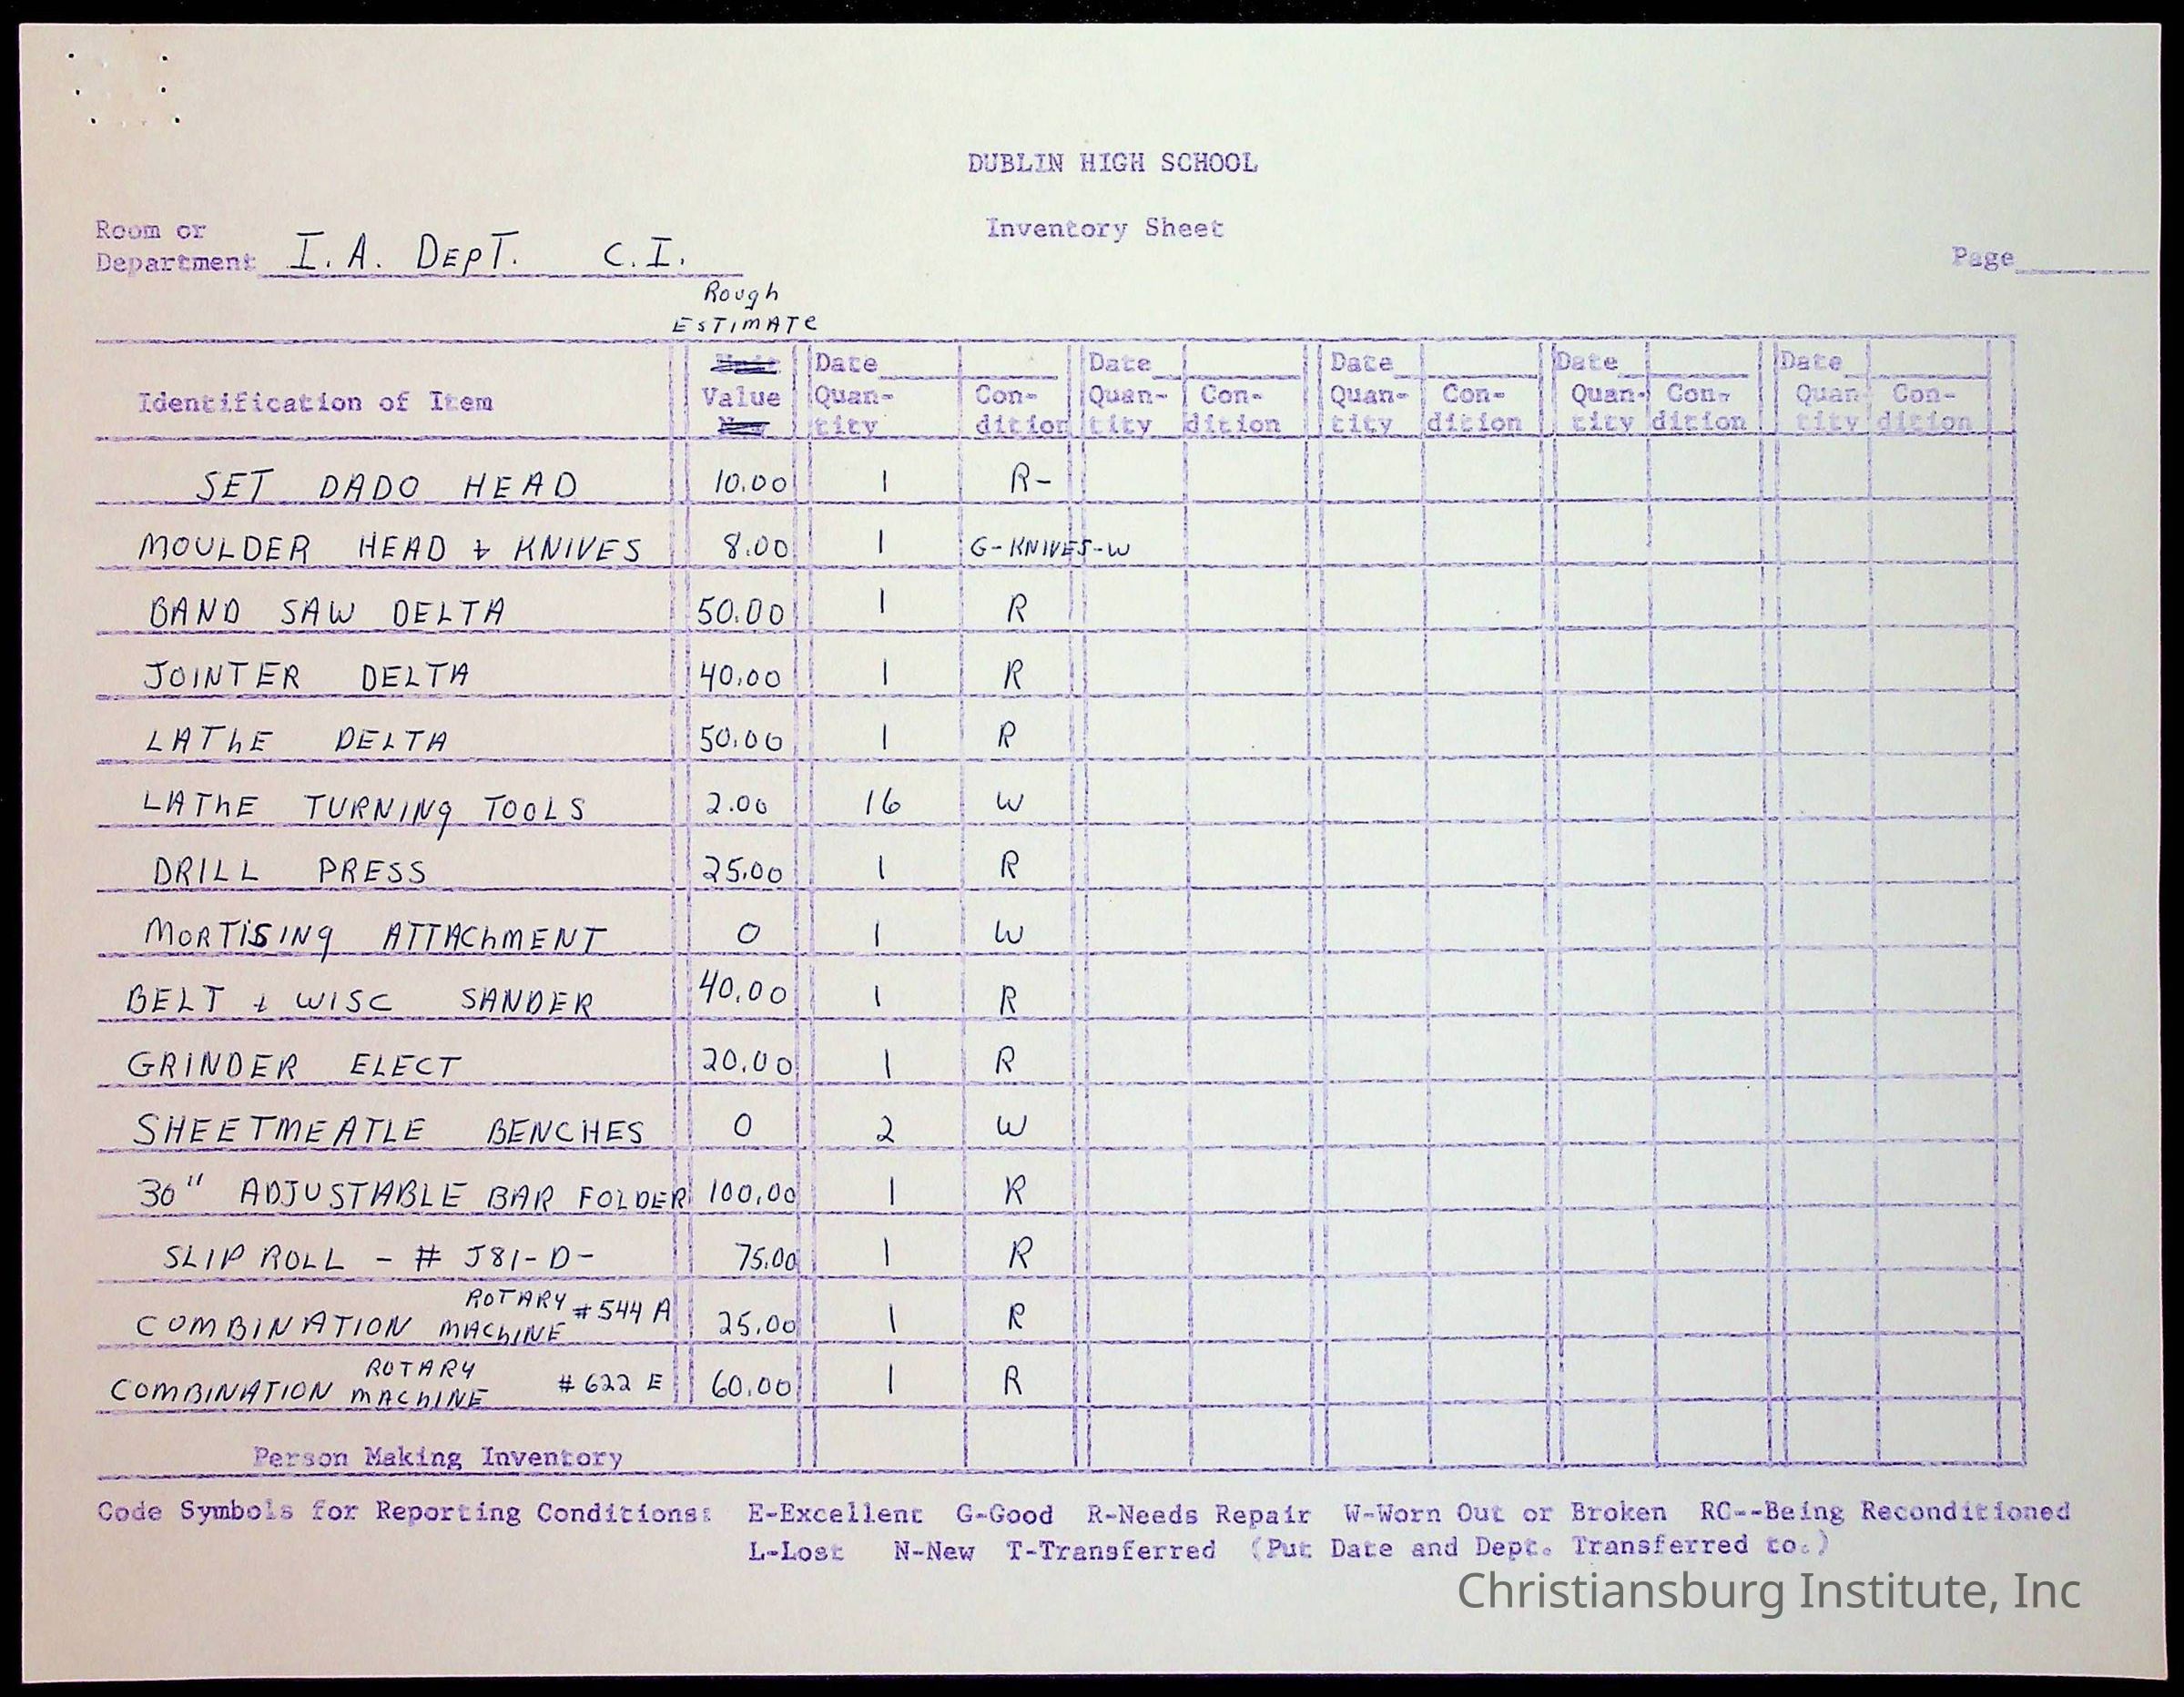 DUBLIN HIGH SCHOOL
Inventory Sheet
Room or
Department I. A. DEPT. C.I.
Page
Rough
ESTIMATE
Identification of Item Value Date Quan-tity Con-dition Date Quan-tity Con-dition Date Quan-tity Con-dition Date Quan-tity Con-dition Date Quan-tity Con-dition
SET DADO HEAD 10.00 1 R-
MOULDER HEAD & KNIVES 8.00 1 G-KNIVES-W
BAND SAW DELTA 50.00 1 R
JOINTER DELTA 40.00 1 R
LAThE DELTA 50.00 1 R
LAThE TURNINg TOOLS 2.00 16 W
DRILL PRESS 25.00 1 R
MORTiSINg ATTAChMENT 0 1 W
BELT & WISC SANDER 40.00 1 R
GRINDER ELECT 20.00 1 R
SHEETMEATLE BENCHES 0 2 W
30" ADJUSTABLE BAR FOLDER 100.00 1 R
SLIP ROLL - # J81-D- 75.00 1 R
COMBINATION ROTARY MAChINE #544 A 25.00 1 R
COMBINATION ROTARY MAChINE #622 E 60.00 1 R
Person Making Inventory
Code Symbols for Reporting Conditions: E-Excellent G-Good R-Needs Repair W-Worn Out or Broken RC--Being Reconditioned
L-Lost N-New T-Transferred (Put Date and Dept. Transferred to.)
Christiansburg Institute, Inc